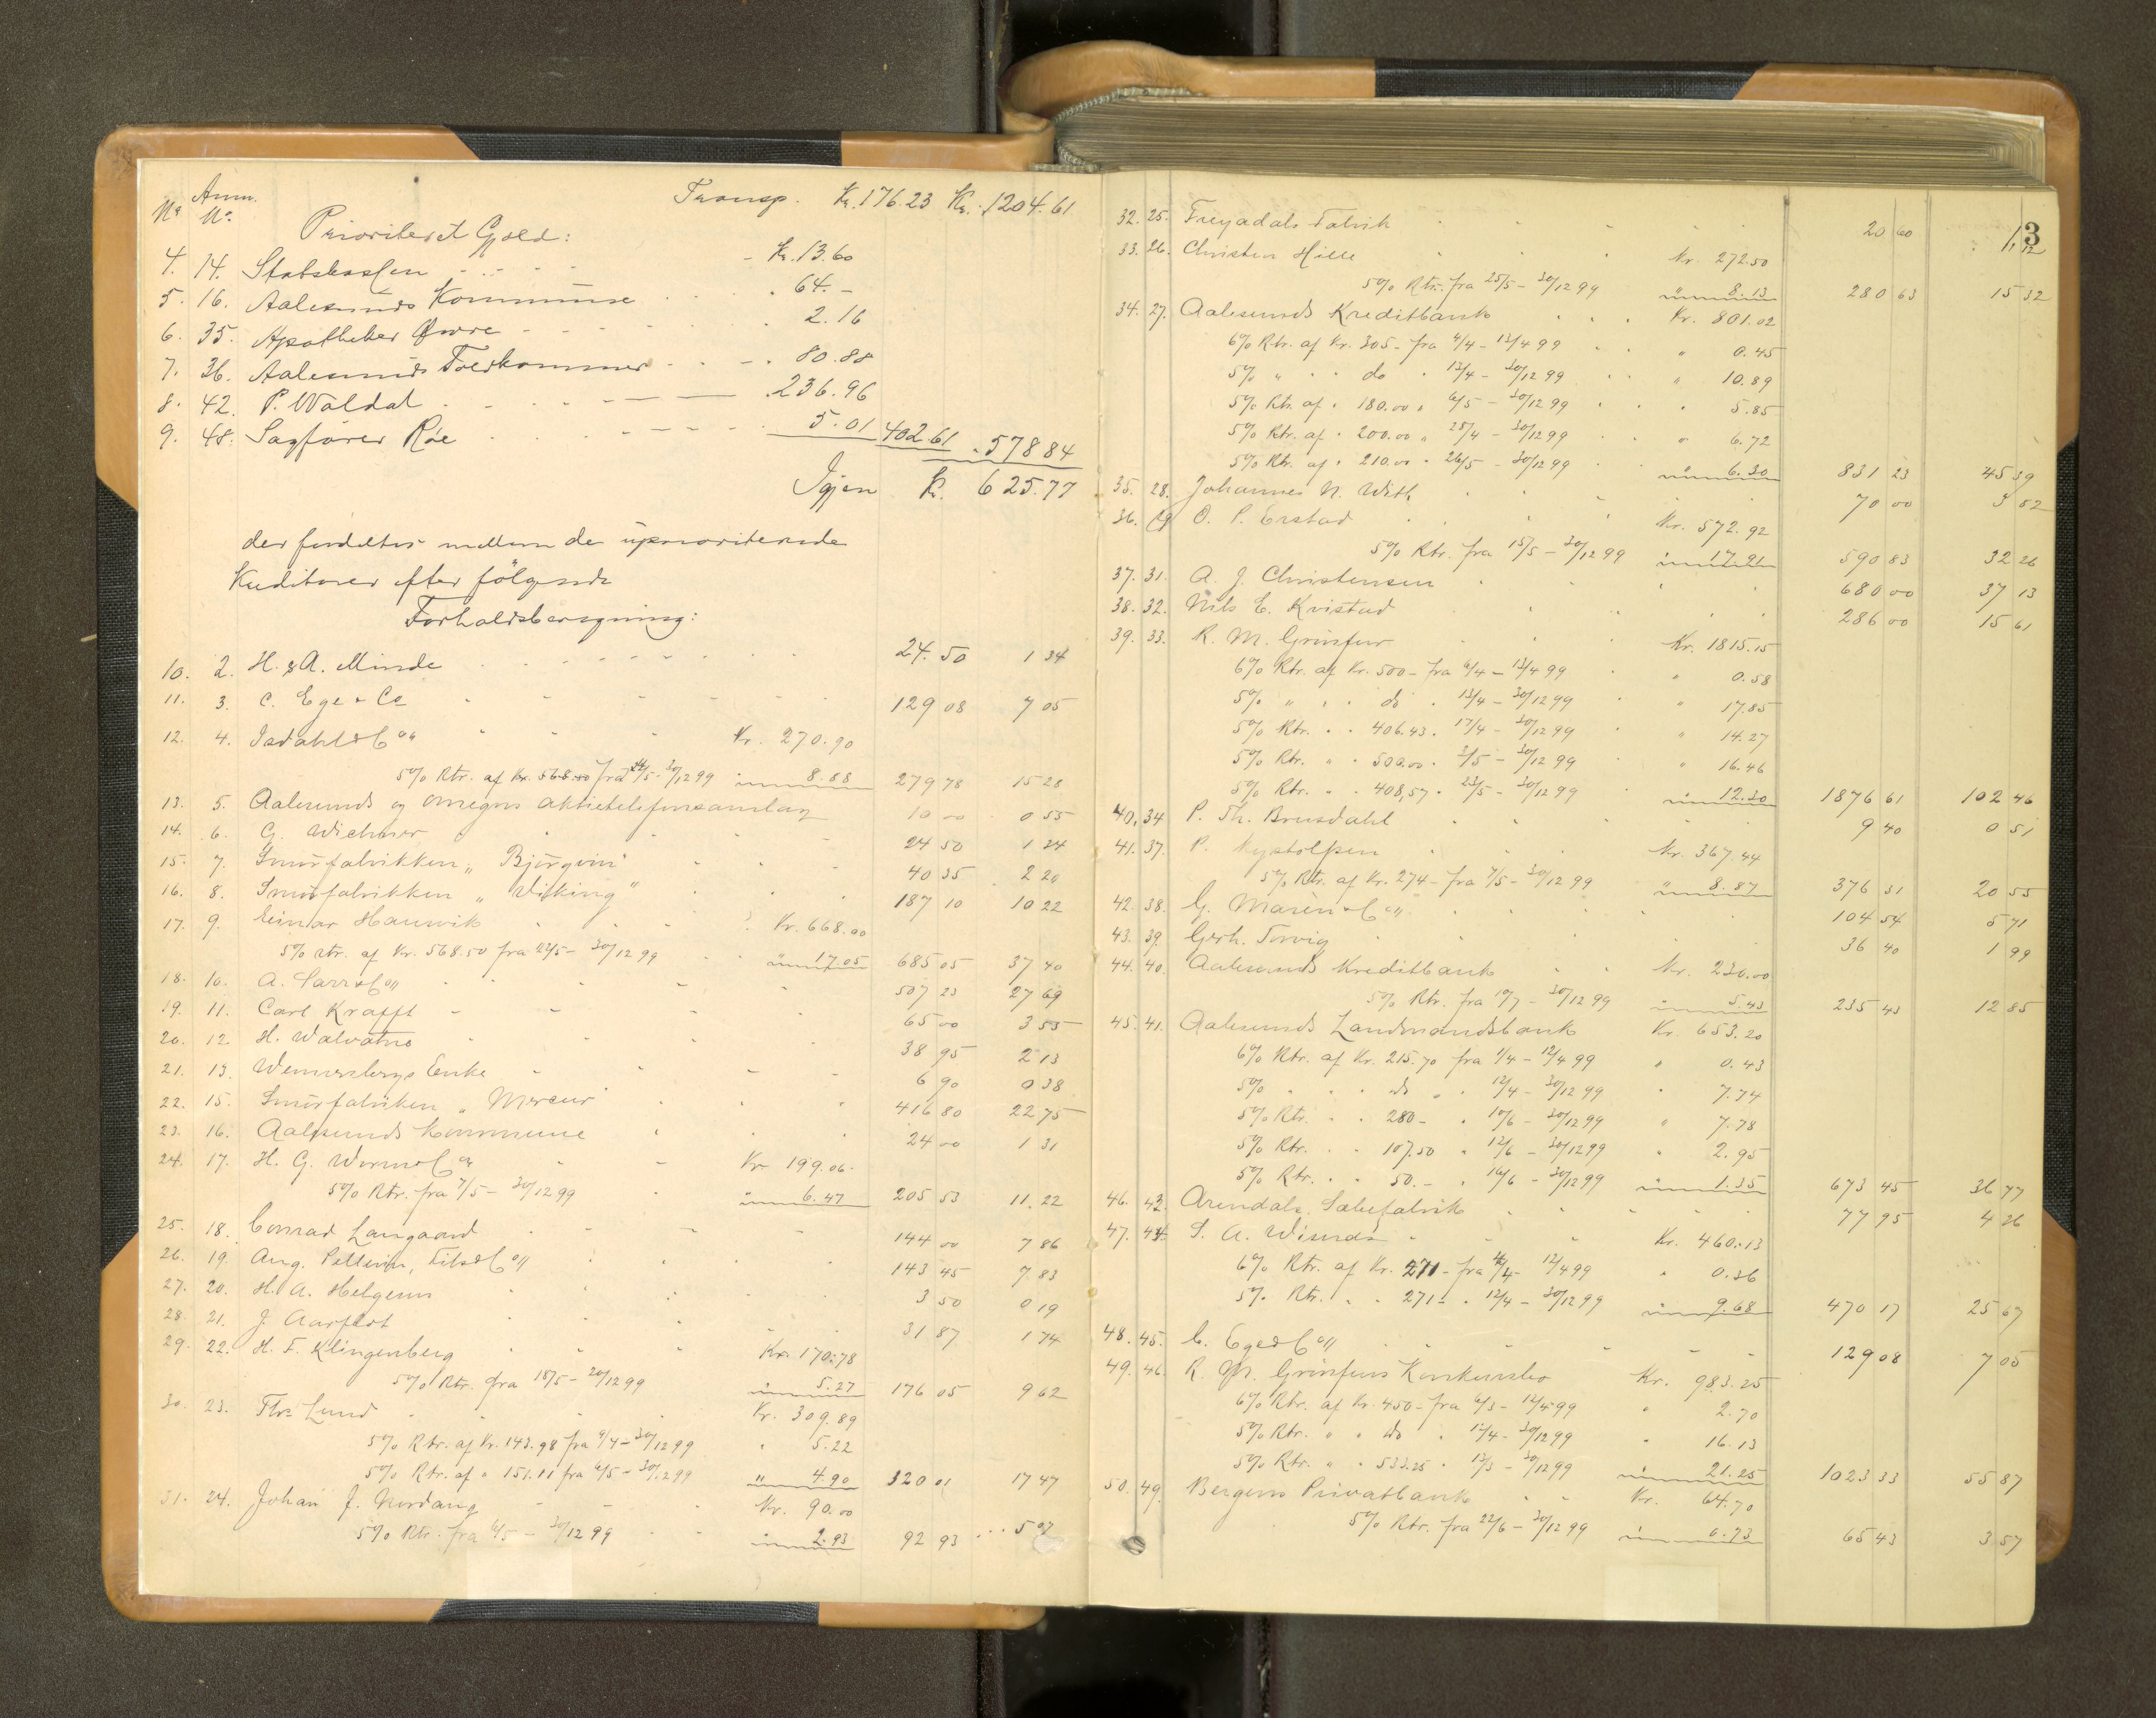 Anm.
No No. Transp. Kr. 176.23 Kr. 1204.61
Prioriteret Gjæld:
4. 14. Statskassen Kr. 13.60
5. 16. Aalesunds Kommune 64.-
6. 35. Apotheker Øwre 2.16
7. 36. Aalesunds Toldkammer 80.88
8. 42. P. Waldal 236.96
9. 48. Sagfører Røe 5.01 402.61 578 84
Igjen Kr. 625.77
der fordeles mellem de uprioriterede
Kreditorer efter følgende
Forholdsberegning:
10. 2. H. & A. Minde 24.50 1 34
11. 3. C. Ege & Co 129 08 7 05
12. 4. Isdahl & Co Kr. 270.90
5% Rtr. af Kr. 568.50 fra 24/5 - 30/12 99 " 8.88 279 78 15 28
13. 5. Aalesunds og Omegns Aktietelefonsamlag 10 00 0 55
14. 6. G. Wichmer 24 50 1 34
15. 7. Smørfabrikken "Bjørgvin" 40 35 2 20
16. 8. Smørfabrikken "Wiking" 187 10 10 22
17. 9. Einar Hauwik Kr. 668.00
5% Rtr. af Kr. 568.50 fra 22/5 - 30/12 99 " 17.05 685 05 37 40
18. 10. A. Sarr & Co 507 23 27 69
19. 11. Carl Krafft 65 00 3 55
20. 12. H. Walvatne 38 95 2 13
21. 13. Wennersbergs Enke 6 90 0 38
22. 15. Smørfabriken "Mercur" 416 80 22 75
23. 16. Aalesunds Kommune 24 00 1 31
24. 17. H. G. Worm & Co Kr. 199.06
5% Rtr. fra 7/5 - 30/12 99 " 6.47 205 53 11.22
25. 18. Conrad Langaard 144 00 7 86
26. 19. Aug. Pellerin, Fils & Co 143 45 7 83
27. 20. H. A. Helgesen 3 50 0 19
28. 21. J. Aarflot 31 87 1 74
29. 22. H. F. Klingenberg Kr. 170.78
5% Rtr. fra 18/5 - 30/12 99 " 5.27 176 05 9 62
30. 23. Ths Lund Kr. 309.89
5% Rtr. af Kr. 143.98 fra 9/4 - 30/12 99 " 5.22
5% Rtr. af " 151.11 fra 6/5 - 30/12 99 " 4.90 320 01 17 47
31. 24. Johan J. Nordang Kr. 90.00
5% Rtr. fra 6/5 - 30/12 99 " 2.93 92 93 5 07
3
32. 25. Freyadals Fabrik 20 60 1,12
33. 26. Christen Hille Kr. 272.50
5% Rtr. fra 25/5 - 30/12 99 " 8.13 280 63 15 32
34. 27. Aalesunds Kreditbank Kr. 801.02
6% Rtr. af Kr. 305 - fra 4/4 - 13/4 99 " 0.45
5% " " do " 13/4 - 30/12 99 " 10.89
5% Rtr. af " 180.00 " 6/5 - 30/12 99 " 5.85
5% Rtr. af " 200.00 " 28/4 - 30/12 99 " 6.72
5% Rtr. af " 210.00 " 26/5 - 30/12 99 " 6.30 831 23 45 39
35. 28. Johannes N. With 70 00 3 82
36. 29. O. P. Erstad Kr. 572.92
5% Rtr. fra 15/5 - 30/12 99 " 17.91 590 83 32 26
37. 31. A. J. Christensen 680 00 37 13
38. 32. Nils E. Kvistad 286 00 15 61
39. 33. R. M. Grimfur Kr. 1815.15
6% Rtr. af Kr. 500 - fra 6/4 - 13/4 99 " 0.58
5% " " do " 13/4 - 30/12 99 " 17.85
5% Rtr. " " 406.43 " 17/4 - 30/12 99 " 14.27
5% Rtr. " " 500.00 " 3/5 - 30/12 99 " 16.46
5% Rtr. " " 408,57 " 23/5 - 30/12 99 " 12.30 1876 61 102 46
40. 34. P. Th. Brusdahl 9 40 0 51
41. 37. P. Nystølsen Kr. 367.44
5% Rtr. af Kr. 274 - fra 7/5 - 30/12 99 " 8.87 376 31 20 55
42. 38. G. Masen & Co 104 54 5 71
43. 39. Gerh. Torvig 36 40 1 99
44. 40. Aalesunds Kreditbank Kr. 230.00
5% Rtr. fra 10/7 - 30/12 99 " 5.43 235 43 12 85
45. 41. Aalesunds Landmandsbank Kr. 653.20
6% Rtr. af Kr. 215.70 fra 1/4 - 12/4 99 " 0.43
5% " " do " 12/4 - 30/12 99 " 7.74
5% Rtr. " " 280 - " 10/6 - 30/12 99 " 7.78
5% Rtr. " " 107.50 " 12/6 - 30/12 99 " 2.95
5% Rtr. " " 50.- " 16/6 - 30/12 99 " 1.35 673 45 36 77
46. 43. Arendals Sæbefabrik 77 95 4 26
47. 44. S. A. Wisnæs Kr. 460.13
6% Rtr. af Kr. 271 - fra 4/4 - 12/4 99 " 0.36
5% Rtr. " " 271 - " 12/4 - 30/12 99 " 9.68 470 17 25 67
48. 45. C. Ege & Co 129 08 7 05
49. 46. R. M. Grimfurs Konkursbo Kr. 983.25
6% Rtr. af Kr. 450 - fra 6/3 - 12/4 99 " 2.70
5% Rtr. " " do " 12/4 - 30/12 99 " 16.13
5% Rtr. " " 533.25 " 13/3 - 30/12 99 " 21.25 1023 33 55 87
50. 49. Bergens Privatbank Kr. 64.70
5% Rtr. fra 22/6 - 30/12 99 " 0.73 65 43 3 57